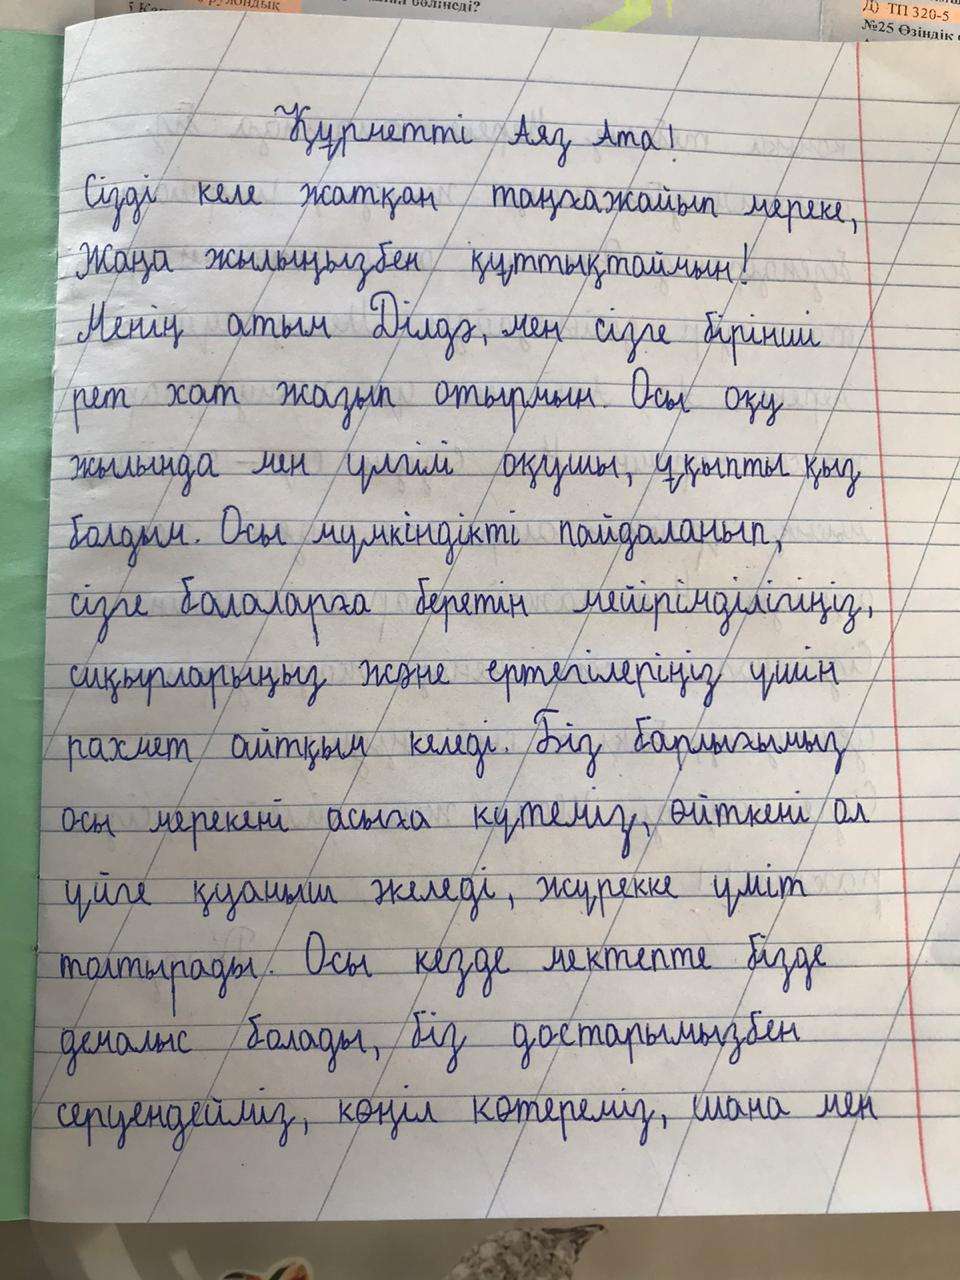 рулондық
бөлінеді?
Д) ТП 320-5
№25 Өзіндік
Құрметті Аяз Ата!
Сізді келе жатқан таңғажайып мереке,
Жаңа жылыңызбен құттықтаймын!
Менің атым Ділдә, мен сізге бірінші
рет хат жазып отырмын. Осы оқу
жылында мен үлгілі оқушы, ұқыпты қыз
болдым. Осы мүмкіндікті пайдаланып,
сізге балаларға беретін мейірімділігіңіз,
сиқырларыңыз және ертегілеріңіз үшін
рахмет айтқым келеді. Біз барлығымыз
осы мерекені асыға күтеміз, өйткені ол
үйге қуаныш әкеледі, жүрекке үміт
толтырады. Осы кезде мектепте бізде
демалыс болады, біз достарымызбен
серуендейміз, көңіл көтереміз, шана мен